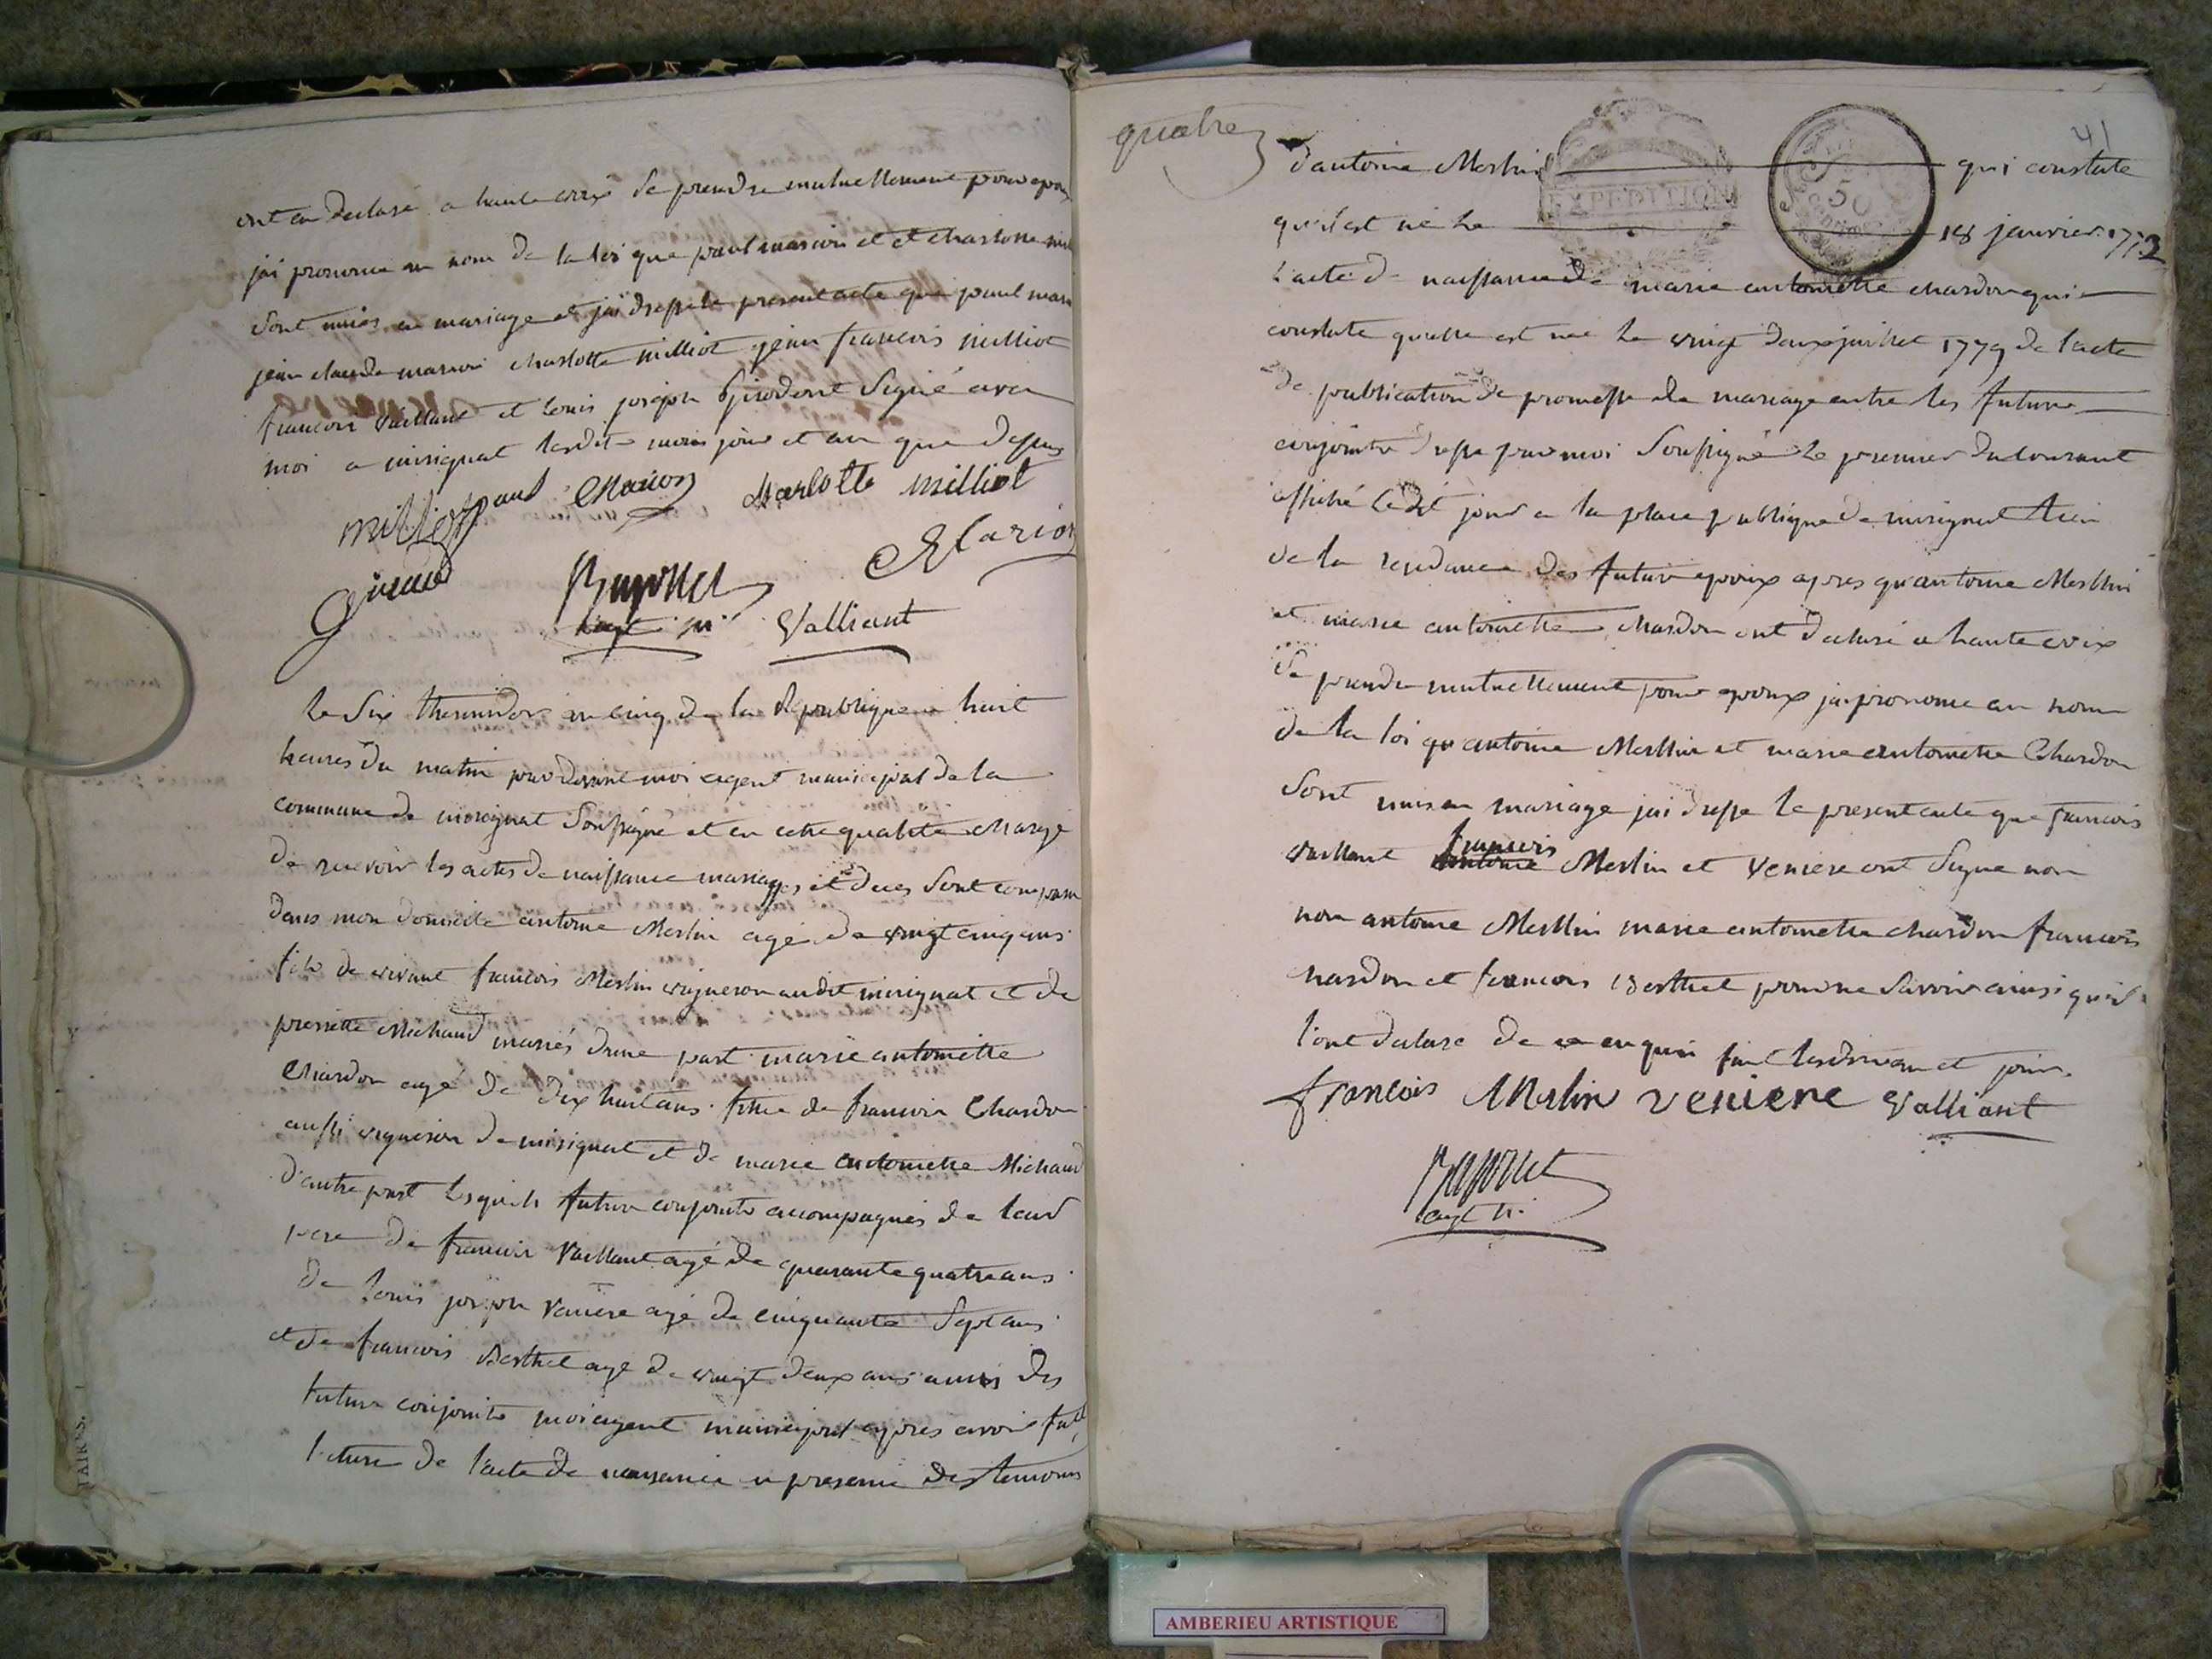 ont en declaré a haute voix se prendre mutuellement pour epoux
jai prononcé au nom de la loi que paul marion et et charlotte mil
sont unies en mariage et jai dressé le present acte que paul mari
jean claude marion charlotte milliot jean francois milliot
francois vaillant et louis joseph girod ont signé avec
moi a mirignat lesdits mois jour et an que dessus
milliot paul Marion Charlotte milliot
Marion
giraud
agt m Valliant
le six thermidor an cinq de la Republique a huit
heures du matin pardevant moi agent municipal de la
commune de mirignat soussigné et en cette qualité charge
de recevoir les actes de naissance mariages et deces sont comparu
dans mon domicile antoine Merlin agé de vingt cinq ans
fils de vivant francois Merlin vigneron audit mirignat et de
pierrette Michaud mariés dune part marie antoinette
Chardon agé de dix huit ans fille de francois Chardon
aussi vigneron de mirignat et de marie antoinette Michaud
d'autre part lesquels futurs conjoints accompagnés de leur
pere de francois Vaillant agé de quarante quatre ans
de louis joseph Veniere agé de cinquante sept ans
et de francois Berthet agé de vingt deux ans amis des
futurs conjoints moi agent municipal apres avoir fait
lecture de l'acte de naissance en presence des temoins
quatre
41
d'antoine Merlin qui constate
EXPEDITION
50
centimes
qu'il est né le 18 janvier 1772
l'acte de naissance de marie antoinette chardon qui
constate quelle est née le vingt deux juillet 1779 de l'acte
de publication de promesse de mariage entre les futurs
conjoints dressé par moi soussigné le premier du courant
affiché ledit jour a la place publique de mirignat lieu
de la residence des futurs epoux apres qu'antoine Merlin
et marie antoinette chardon ont declaré a haute voix
se prendre mutuellement pour epoux jai prononcé au nom
de la loi qu'antoine Merlin et marie antoinette Chardon
sont unis en mariage jai dressé le present acte que francois
vaillant francois Merlin et Veniere ont signe non
non antoine Merlin marie antoinette chardon francois
chardon et francois Berthet pour ne savoir ainsi qu'ils
l'ont declaré de ce enquis fait lesdits an et jour.
francois Merlin veniere Valliant
agt m.
AMBERIEU ARTISTIQUE